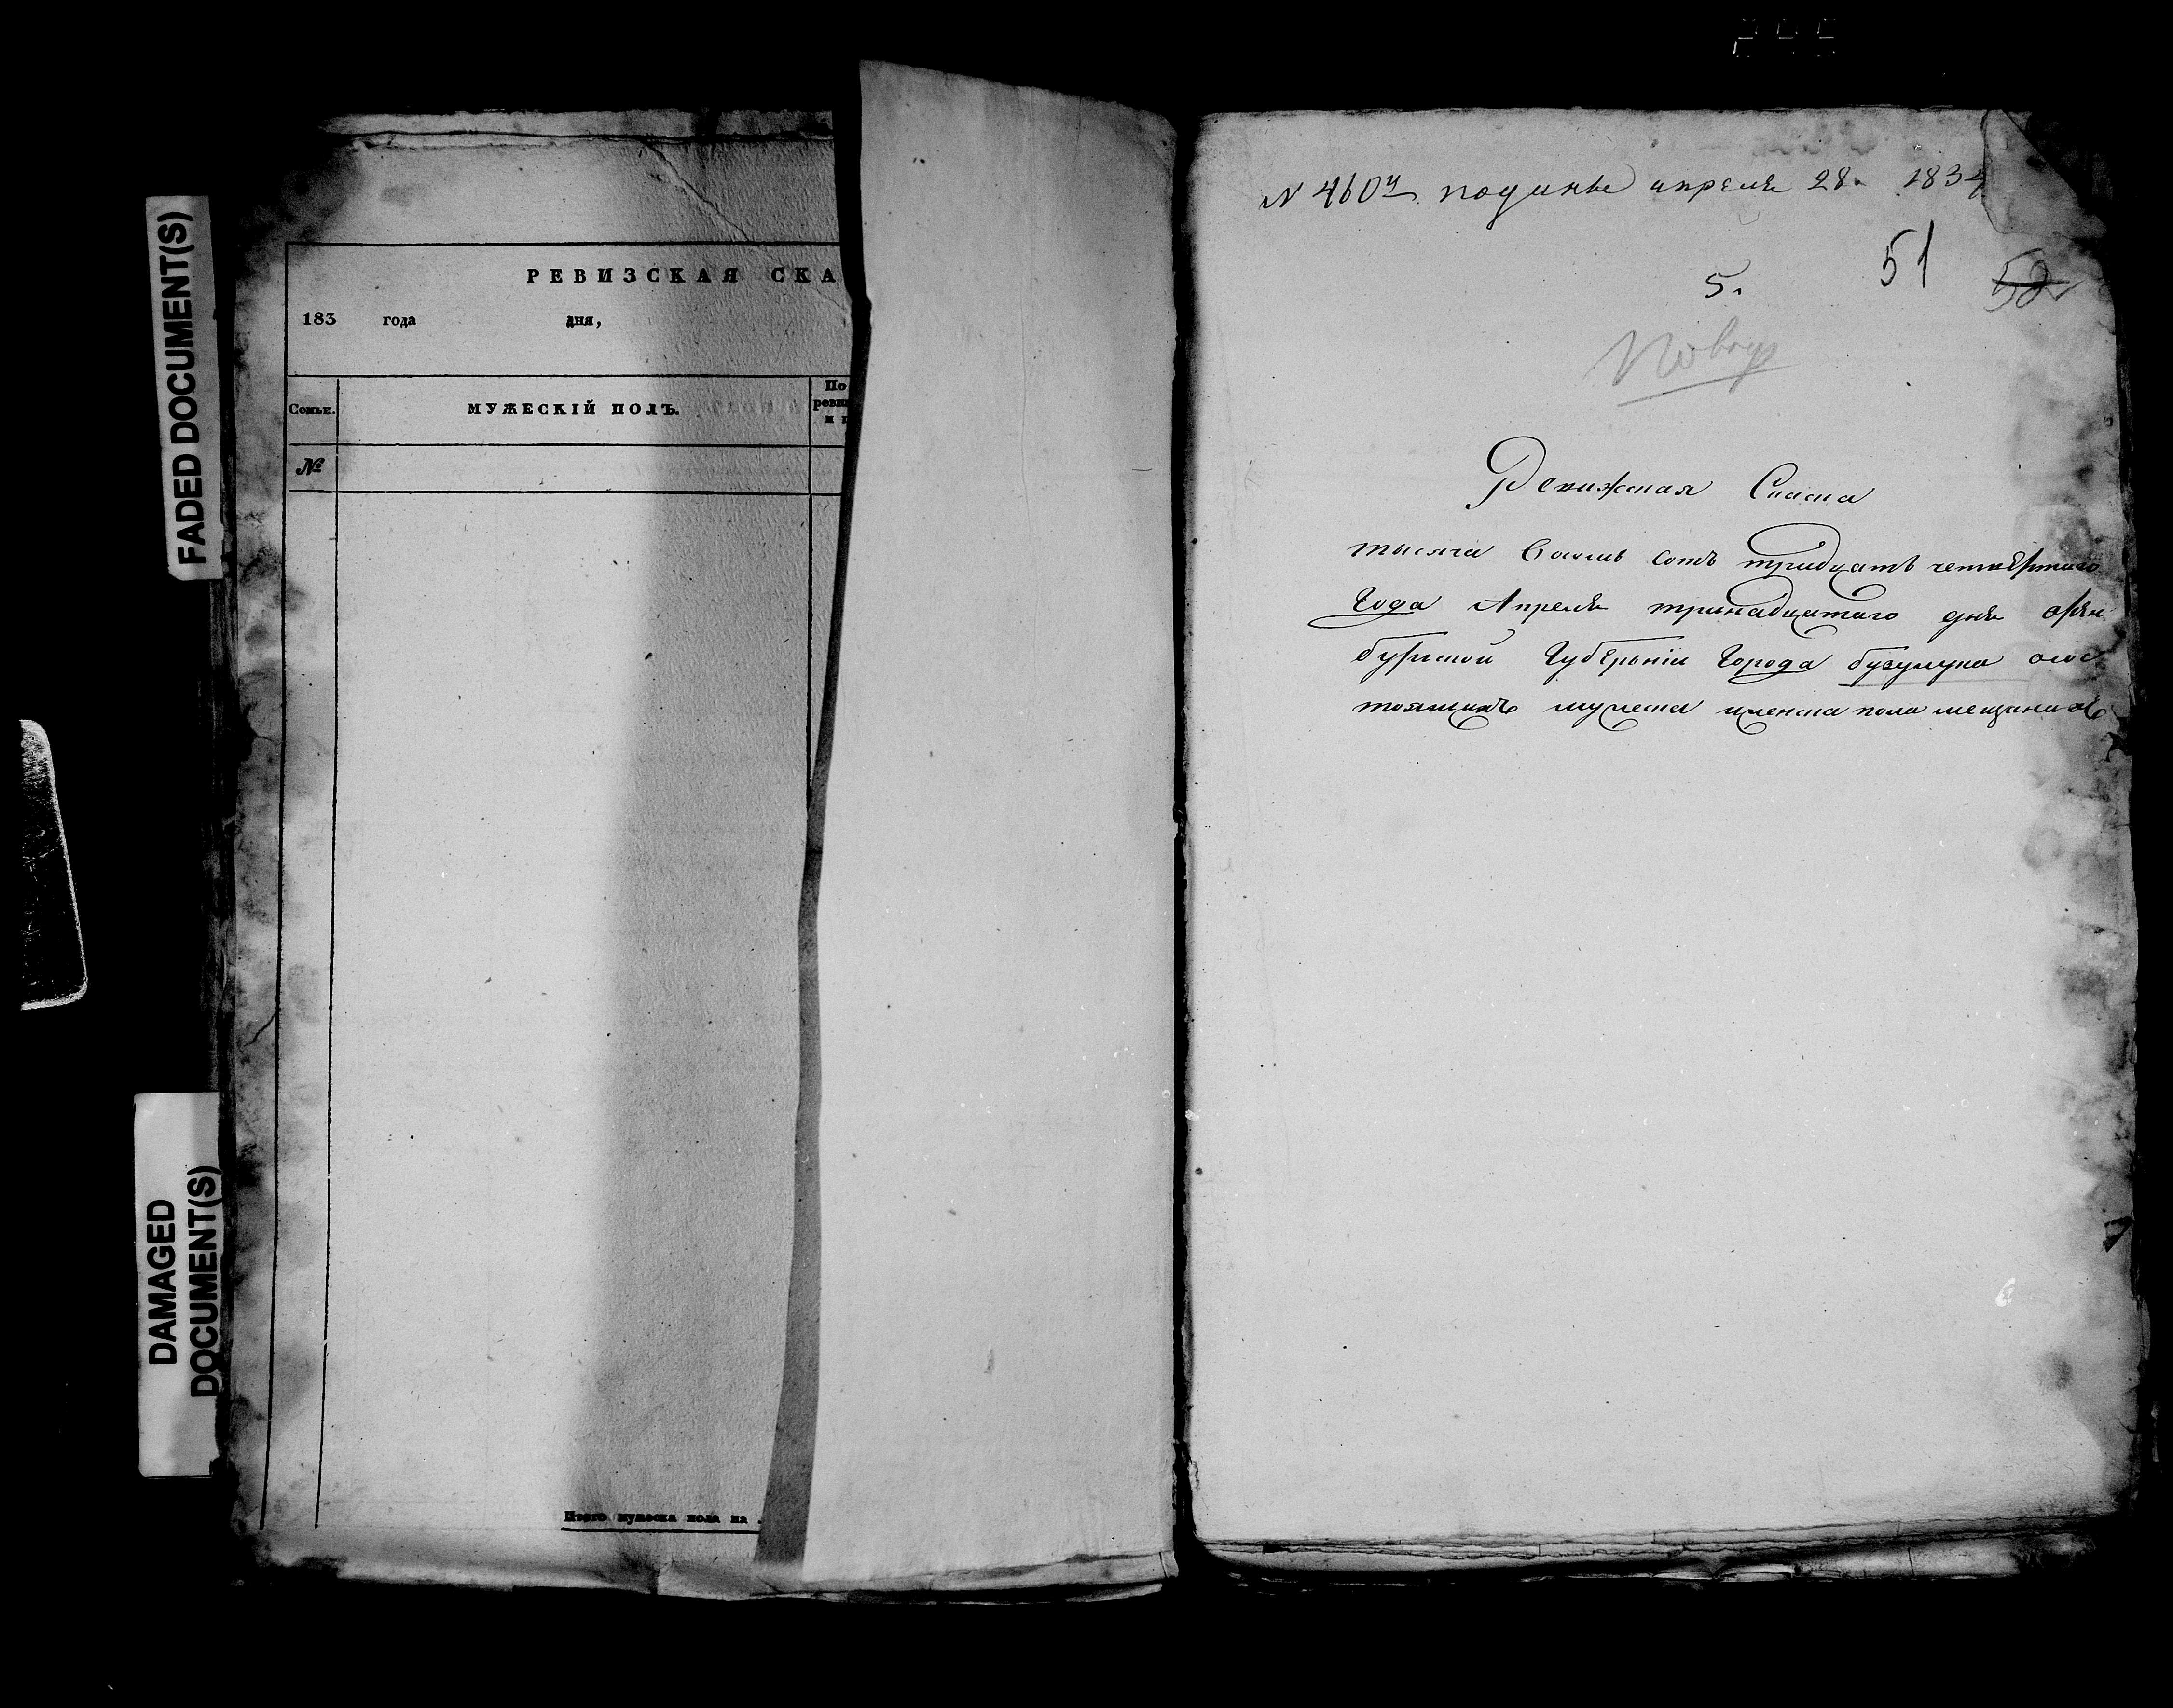 FADED DOCUMENT(S)
DAMAGED
DOCUMENT(S)
РЕВИЗСКАЯ СКА
183 года дня,
Семьи.
МУЖЕСКІЙ ПОЛЪ.
По
реви
и
№
Итого мужеска пола на
N 460й апреля 28. 1834
5.
51
52
Ревижская Скаска
тысяча восемь сотъ тридцать четвертаго
Года Апреля тринадцатаго дня орен
бургской Губерніи Города бузулука осос
тоящихъ мужеска иженска пола мещанахъ